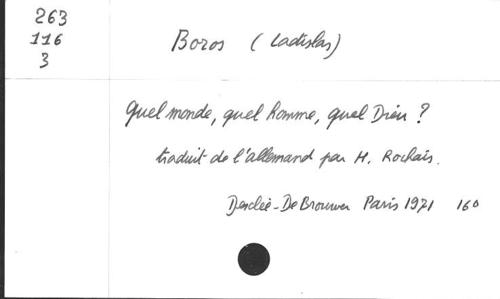 263
116
3
Boros (Ladislas)
Quel monde, quel homme, quel Dieu ?
traduit de l'allemand par H. Rochais.
Desclée-De Brouwer Paris 1971 160